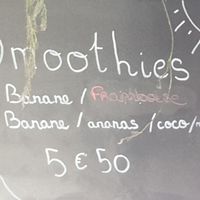 Smoothies
Banane / Framboise
Banane / ananas / coco /
5 € 50